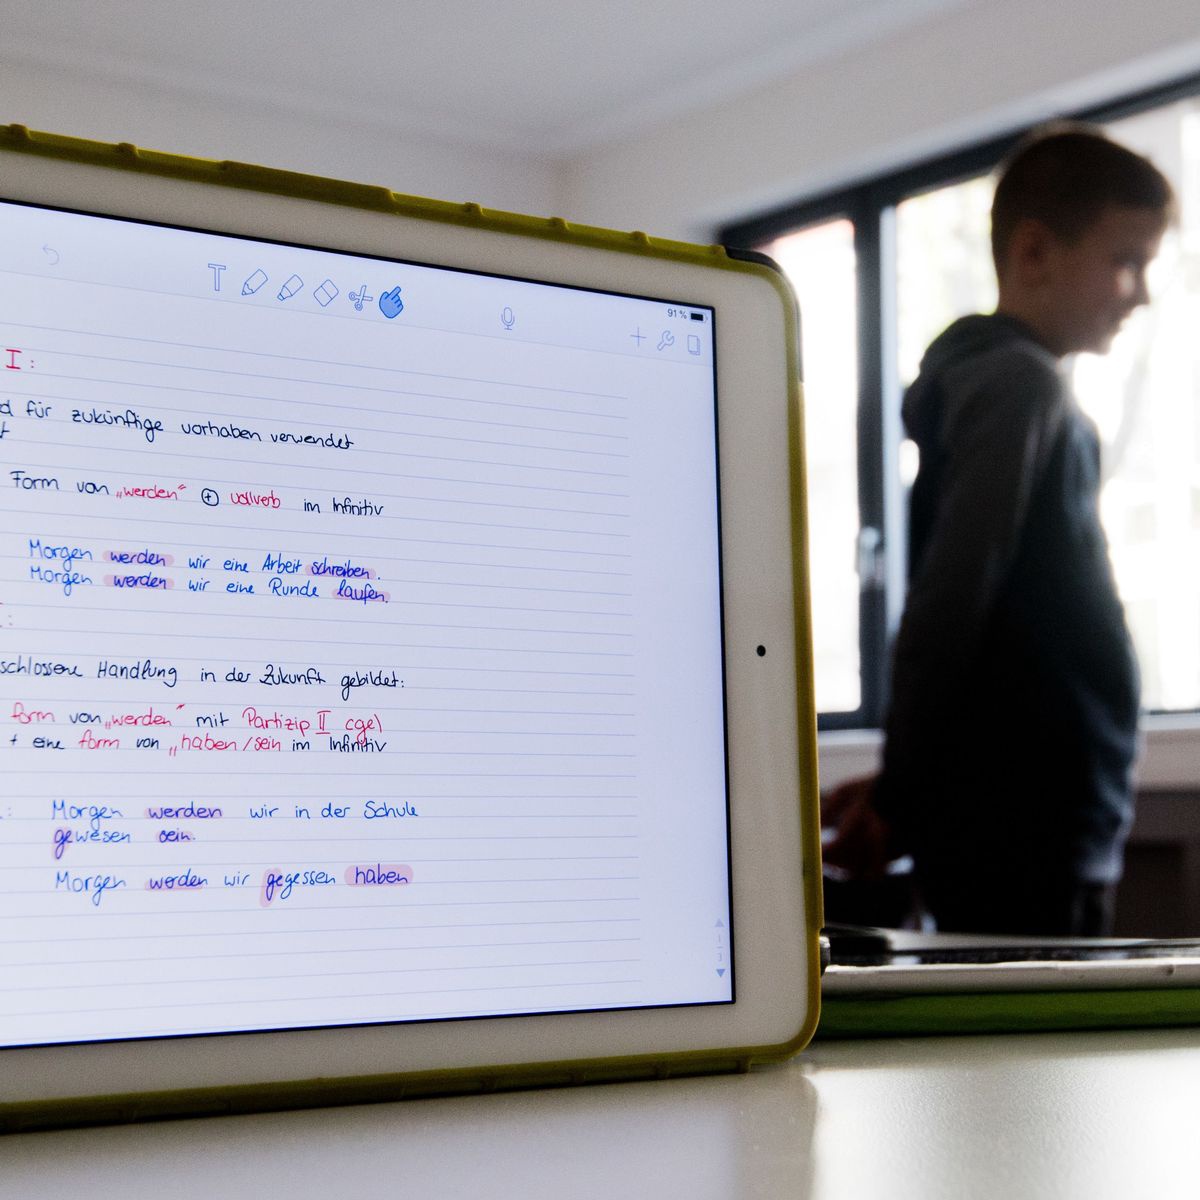 T
91 %
I:
d für zukünftige vorhaben verwendet
t
Form von „werden“ ⊕ vollverb im Infinitiv
Morgen werden wir eine Arbeit schreiben.
Morgen werden wir eine Runde laufen.
I:
schlossene Handlung in der Zukunft gebildet:
form von „werden“ mit Partizip II (ge)
+ eine form von „haben/sein im Infinitiv
: Morgen werden wir in der Schule
gewesen sein.
Morgen werden wir gegessen haben
1
3